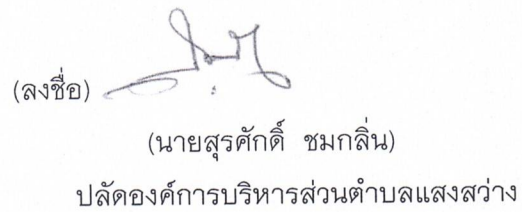 (ลงชื่อ)
(นายสุรศักดิ์ ชมกลิ่น)
ปลัดองค์การบริหารส่วนตำบลแสงสว่าง